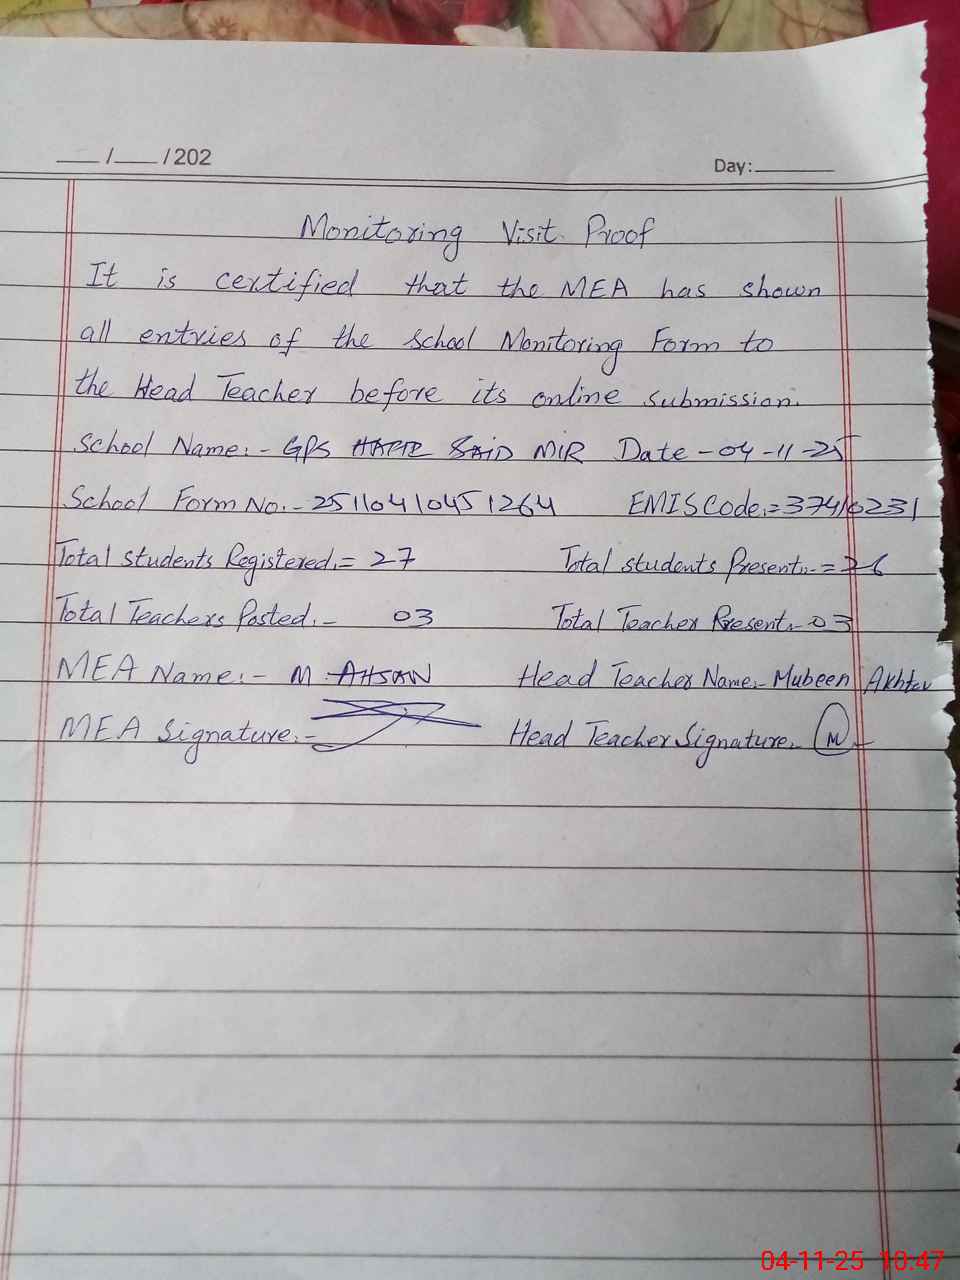 ___/___/202 Day:______
Monitoring Visit Proof
It is certified that the MEA has shown
all entries of the School Monitoring Form to
the Head Teacher before its online submission.
School Name:- GPS SAID MIR Date -04-11-25
School Form No.- 25110410451264 EMIS Code:= 37410231
Total students Registered:= 27 Total students Present:-= 26
Total Teachers Posted:- 03 Total Teacher Present:- 03
MEA Name:- M. AHSAN Head Teacher Name:- Mubeen Akhtar
MEA Signature:- Head Teacher Signature:- M
04-11-25 10:47